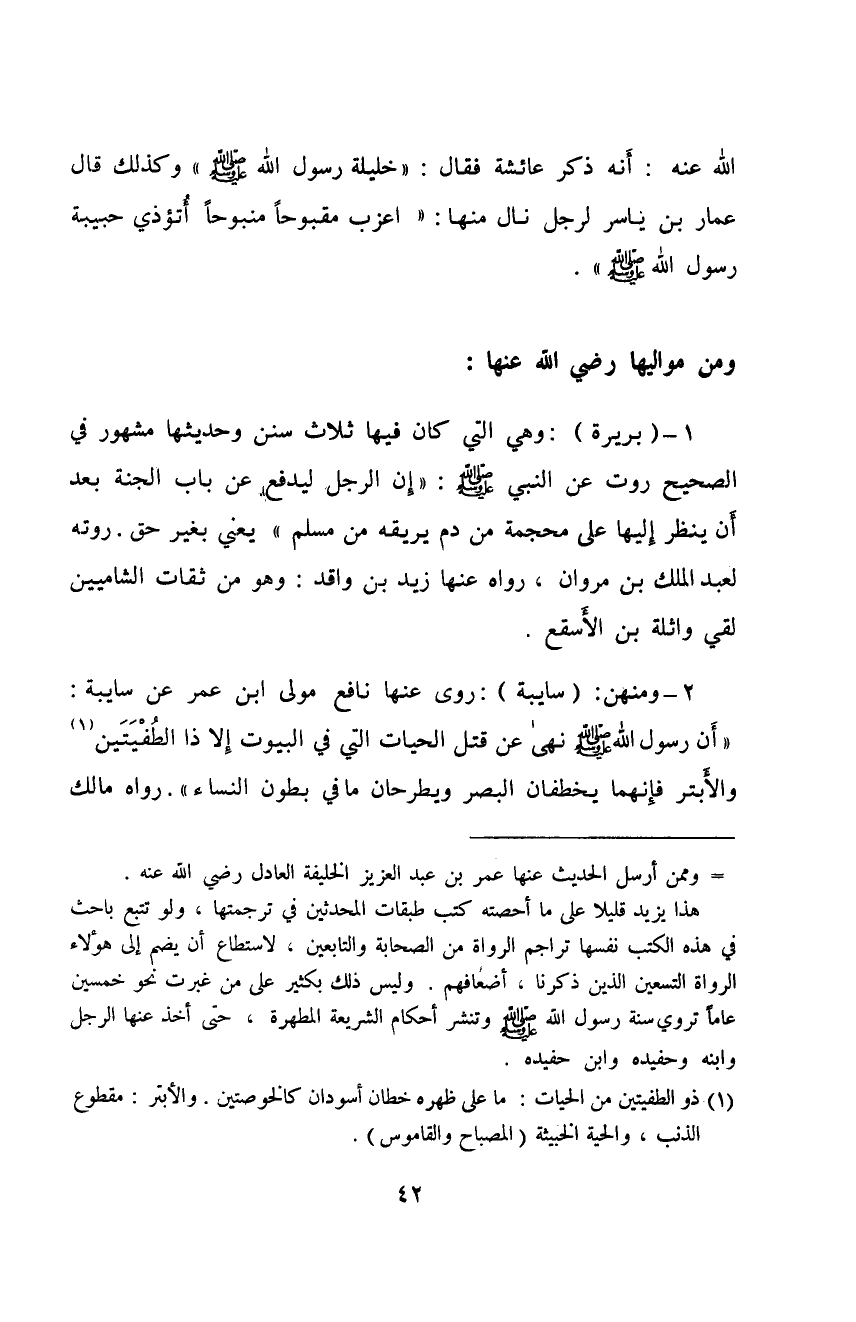 الله عنه : أنه ذكر عائشة فقال : «خليلة رسول الله ﷺ » وكذلك قال
عمار بن ياسر لرجل نال منها : « اعزب مقبوحاً منبوحاً أتُؤذي حبيبة
رسول الله ﷺ » .
ومن مواليها رضي الله عنها :
١ –( بريرة ) : وهي التي كان فيها ثلاث سنن وحديثها مشهور في
الصحيح روت عن النبي ﷺ : «إن الرجل ليدفع عن باب الجنة بعد
أن ينظر إليها على محجمة من دم يريقه من مسلم » يعني بغير حق . روته
لعبد الملك بن مروان ، رواه عنها زيد بن واقد : وهو من ثقات الشاميين
لقي واثلة بن الأسقع .
٢ –ومنهن: ( سايبة ) : روى عنها نافع مولى ابن عمر عن سايبة :
« أن رسول الله ﷺ نهى عن قتل الحيات التي في البيوت إلا ذا الطُفْيَتَين (١)
والأبتر فإنهما يخطفان البصر ويطرحان ما في بطون النساء» . رواه مالك
= وممن أرسل الحديث عنها عمر بن عبد العزيز الخليفة العادل رضي الله عنه .
هذا يزيد قليلا على ما أحصته كتب طبقات المحدثين في ترجمتها ، ولو تتبع باحث
في هذه الكتب نفسها تراجم الرواة من الصحابة والتابعين ، لاستطاع أن يضم إلى هؤلاء
الرواة التسعين الذين ذكرنا ، أضعافهم . وليس ذلك بكثير على من غبرت نحو خمسين
عاماً تروي سنة رسول الله ﷺ وتنشر أحكام الشريعة المطهرة ، حتى أخذ عنها الرجل
وابنه وحفيده وابن حفيده .
(١) ذو الطفيتين من الحيات : ما على ظهره خطان أسودان كالخوصتين . والأبتر : مقطوع
الذنب ، والحية الخبيثة ( المصباح والقاموس ) .
٤٢